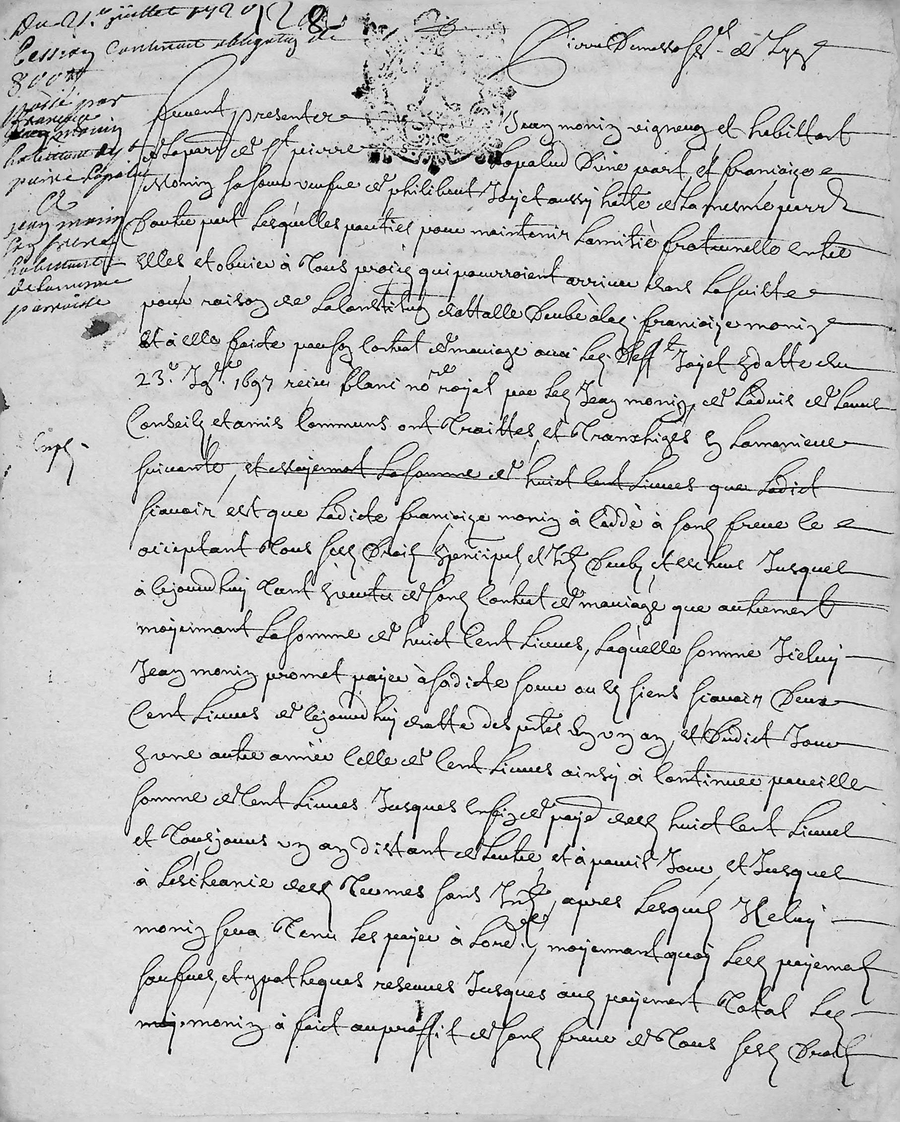 Du 21e juillet 1720
Cession contenant obligation de
800 ₶
passé par
françoise
monin
habitante de St
pierre Lapalud
Et
jean monin
son frere
habitant
de la mesme
parroisse
furent presents Jean monin vigneron et habittant
de la parr de St pierre Lapalud d'une part, et françoize
Monin sa soeur veufve de philibert Joyet aussy habte de la mesme parr
D'autre part Lesquelles parties pour maintenir Lamitié fraternelle entre
Elles et obvier à Tous procès qui pourroient arriver dans La suitte
pour raison de La constitution dottalle Deube à lad. françoize monin
et à elle faicte par son Contrat de mariage avec led. Deff t Joyet en datte du
23e 1697 receu blanc nore royal par led Jean monin, de L'advis de Leurs
Conseils et amis Communs ont Traittes et Tranzhigés en La maniere
suivante, et moyennant La somme de huict Cent Livres que Ladict
sçavoir est que Ladicte françoize monin à Cédé à sond frere le
acceptant Tous sesd Droits en principal et Int Deubs, et escheus Jusques
à Cejourdhuy Tant en vertu de sond Contrat de mariage que autrement
moyennant La somme de huict Cent Livres, Laquelle somme Icieluy
Jean monin promet payer à sadicte soeur ou es siens sçavoir Deux
Cent Livres de Cejourdhuy datte des pntes En un an, et Dudict Jour
En une autre année Celle de Cent Livres ainsy à Continuer pareille
somme de Cent Livres Jusques enfin de payé desd huict Cent Livres
et Tousjours un an distant de Lautre et à pareil Jour, et Jusques
à Lescheance desd Termes sans Int, apres Lesquels Iceluy
monin sera Tenu Les payer à Lord, moyennant quoy Lesd payements
soufues, et ypotheques reservés Jusques aud payement Total Led
monin à faict au proffit de sond frere de Tous sesd Droits